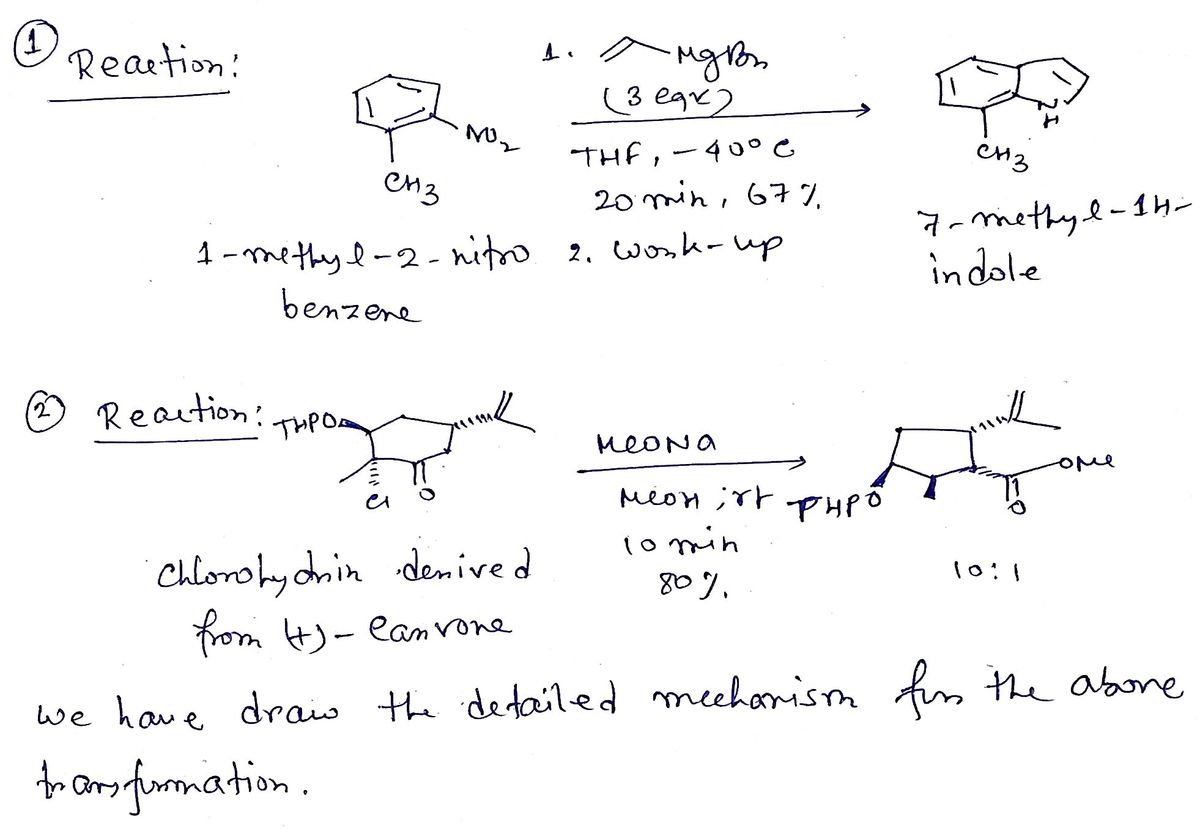 ① Reaction:
1. MgBr
(3 eqv)
NO2
CH3
THF, -40°C
20 min, 67%
N
H
CH3
1-methyl-2-nitro
benzene
2. work-up
7-methyl-1H-
indole
② Reaction:
THPO
Cl
O
MeONa
MeOH ; rt
10 min
80%.
THPO
OMe
O
10:1
Chlorohydrin derived
from (+)- Carvone
we have draw the detailed mechanism for the above
transformation.